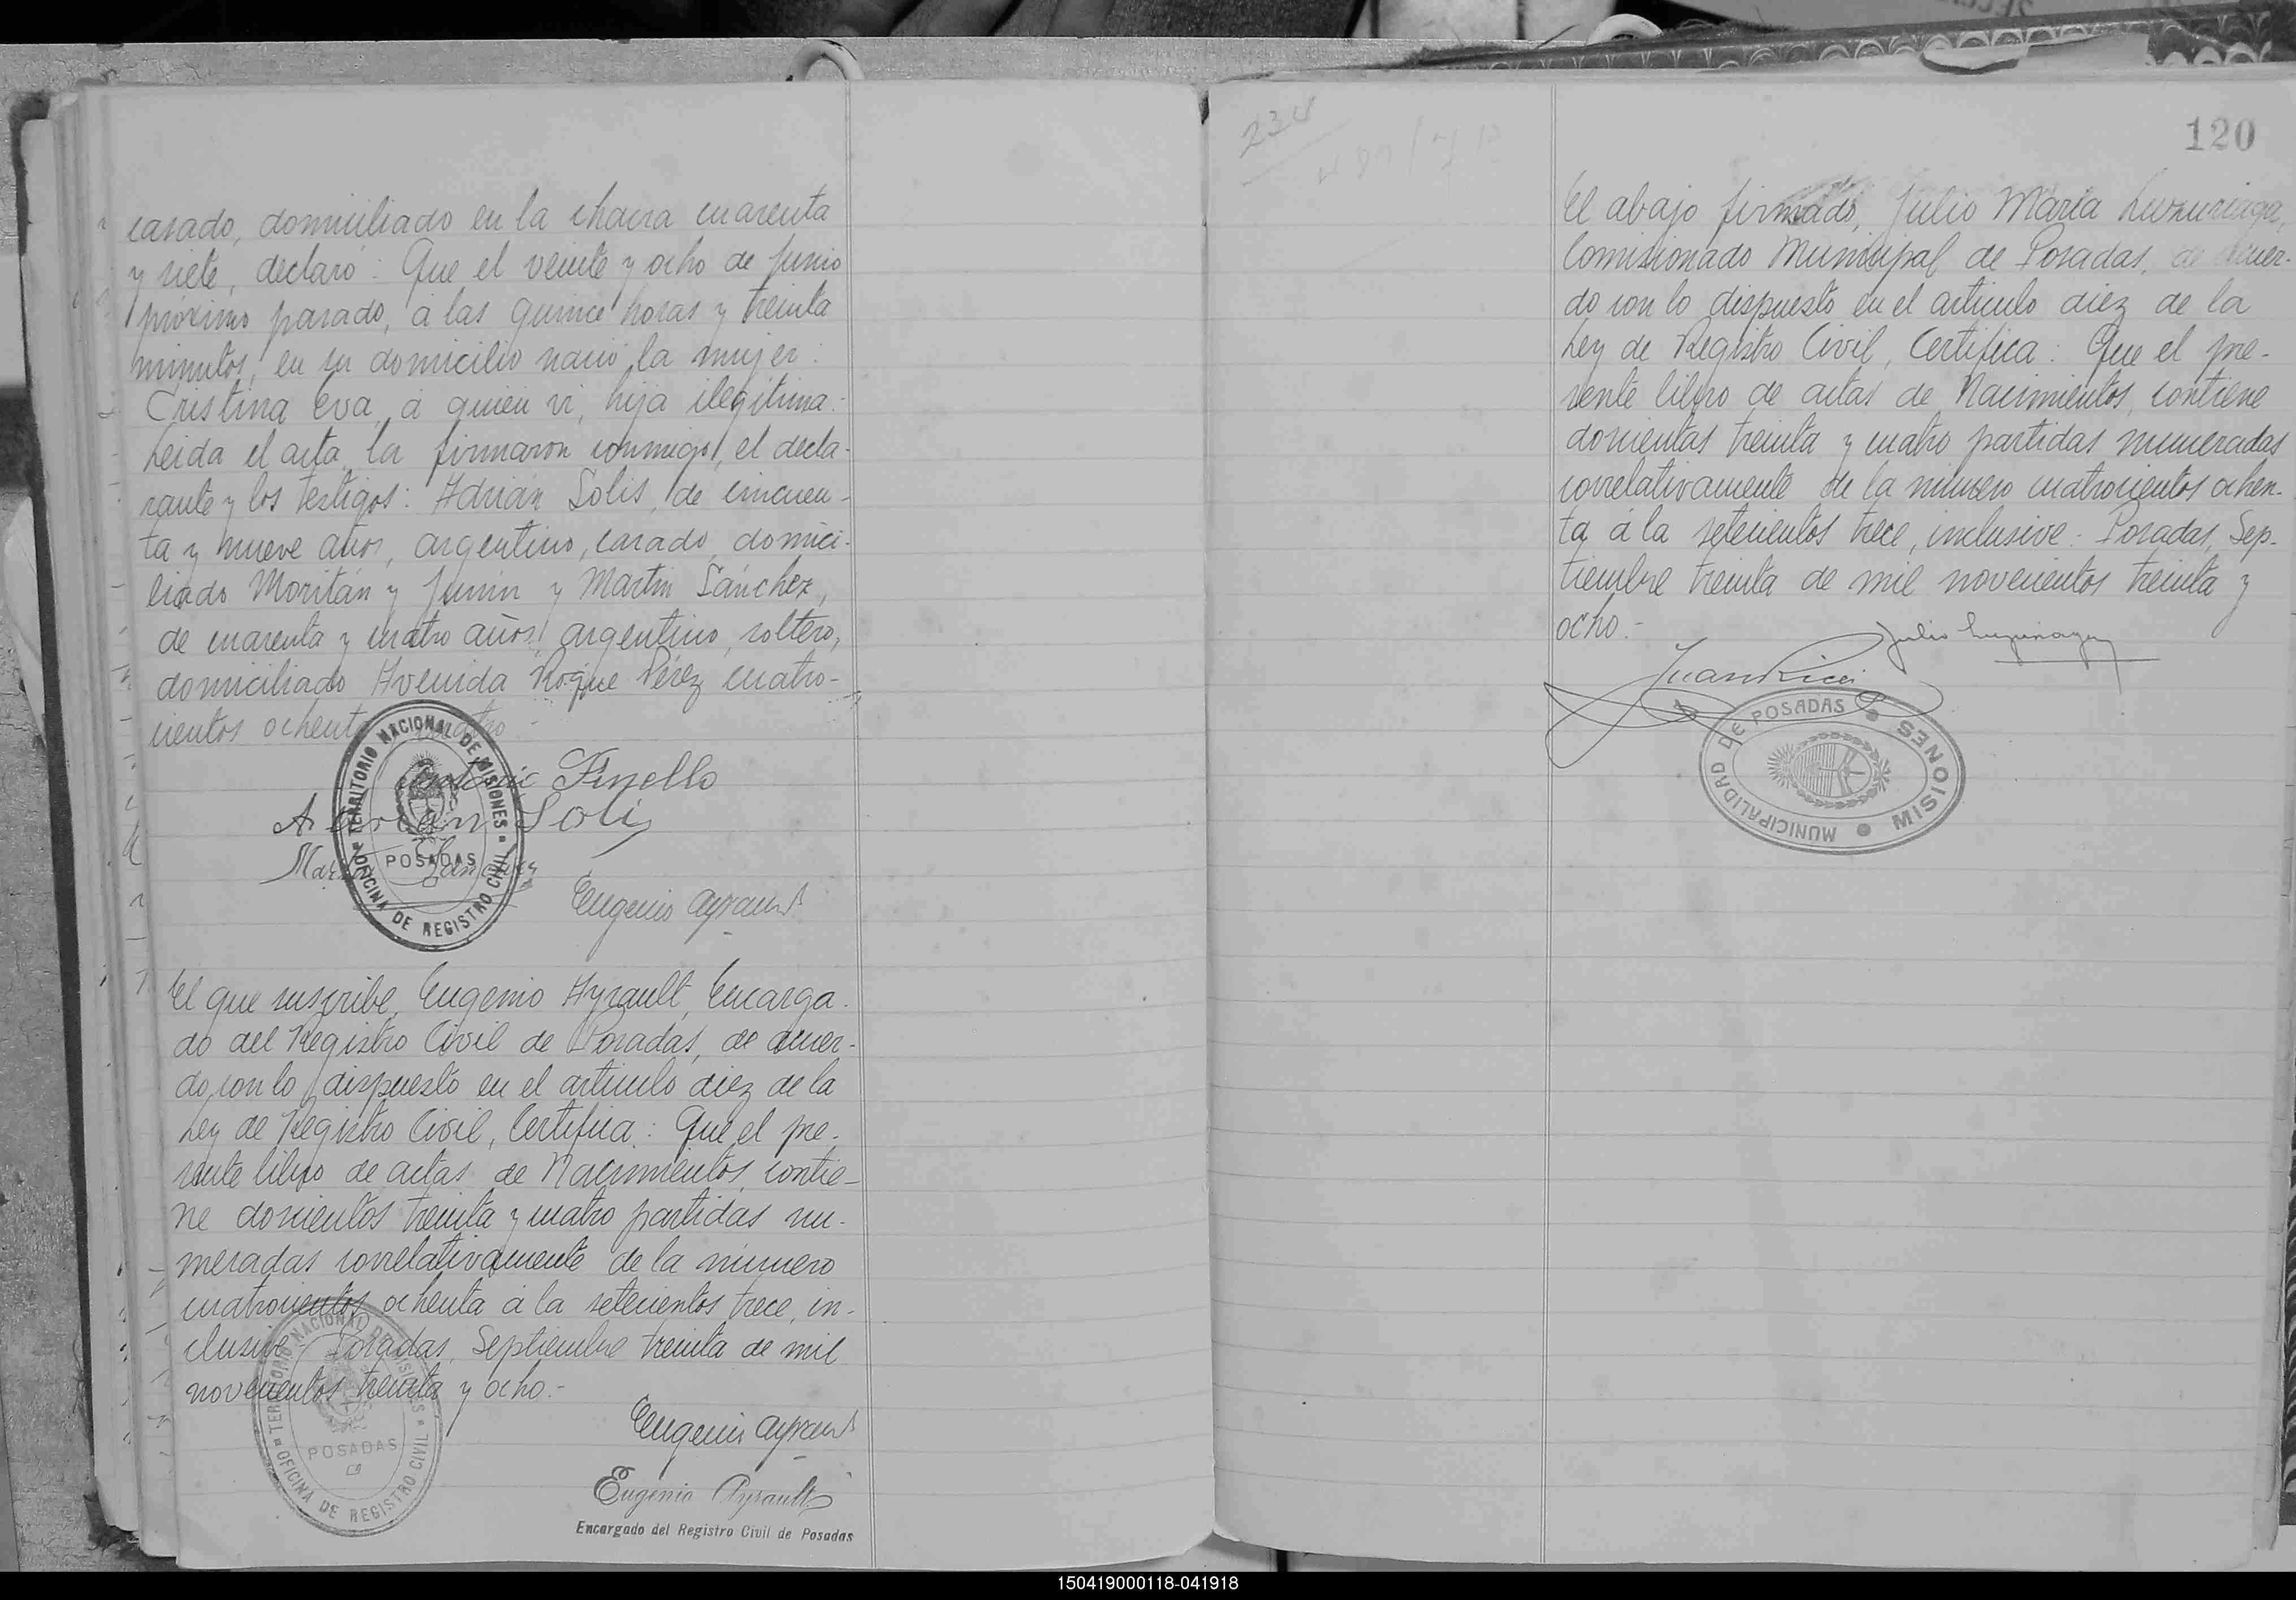 casado, domiciliado en la chacra cuarenta
y siete, declaró: Que el veinte y ocho de Junio
próximo pasado, á las quince horas y treinta
minutos, en su domicilio nació la mujer:
Cristina Eva, á quien vi, hija ilegitima.-
Leida el acta, la firmaron conmigo, el decla-
rante y los testigos: Adrián Solis, de cincuen-
ta y nueve años, argentino, casado, domici-
liado Moritán y Junin y Martin Sánchez,
de cuarenta y cuatro años, argentino, soltero,
domiciliado Avenida Roque Pérez cuatro-
cientos ochenta y cuatro.-
Antonio Finello
Adrian Solis
Martin Sanchez
Eugenio Ayrault
TERRITORIO NACIONAL DE MISIONES
POSADAS
OFICINA DE REGISTRO CIVIL
El que suscribe, Eugenio Ayrault, Encarga-
do del Registro Civil de Posadas, de acuer-
do con lo dispuesto en el articulo diez de la
Ley de Registro Civil, Certifica: Que el pre-
sente libro de actas de Nacimientos, contie-
ne doscientos treinta y cuatro partidas nu-
meradas correlativamente de la número
cuatrocientos ochenta á la setecientos trece, in-
clusive.- Posadas, Septiembre treinta de mil
novecientos treinta y ocho.-
TERRITORIO NACIONAL DE MISIONES
POSADAS
OFICINA DE REGISTRO CIVIL
Eugenio Ayrault
Eugenio Ayrault
Encargado del Registro Civil de Posadas
234
120
El abajo firmado, Julio Maria Luzuriaga,
Comisionado Municipal de Posadas, de acuer-
do con lo dispuesto en el articulo diez de la
Ley de Registro Civil, Certifica: Que el pre-
sente libro de actas de Nacimientos, contiene
doscientas treinta y cuatro partidas numeradas
correlativamente de la número cuatrocientos ochen-
ta á la setecientos trece, inclusive.- Posadas, Sep-
tiembre treinta de mil novecientos treinta y
ocho.-
Julio Luzuriaga
Juan Ricci
MUNICIPALIDAD DE POSADAS
MISIONES
150419000118-041918